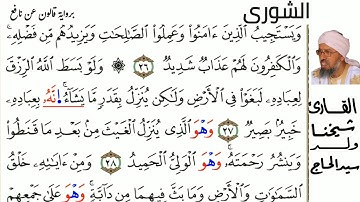 الشورى
برواية قالون عن نافع
وَيَسْتَجِيبُ الَّذِينَ ءَامَنُواْ وَعَمِلُواْ الصَّالِحَاتِ وَيَزِيدُهُم مِّن فَضْلِهِۦۚ
وَالْكَافِرُونَ لَهُمْ عَذَابٌ شَدِيدٌ ٢٦ وَلَوْ بَسَطَ اللَّهُ الرِّزْقَ
لِعِبَادِهِۦ لَبَغَوْاْ فِي الْأَرْضِ وَلَٰكِن يُنَزِّلُ بِقَدَرٍ مَّا يَشَآءُ إِنَّهُۥ بِعِبَادِهِۦ
خَبِيرٌ بَصِيرٌ ٢٧ وَهْوَ الَّذِي يُنَزِّلُ الْغَيْثَ مِنۢ بَعْدِ مَا قَنَطُواْ
وَيَنشُرُ رَحْمَتَهُۥ وَهْوَ الْوَلِيُّ الْحَمِيدُ ٢٨ وَمِنْ ءَايَٰتِهِۦ خَلْقُ
السَّمَٰوَٰتِ وَالْأَرْضِ وَمَا بَثَّ فِيهِمَا مِن دَآبَّةٍ وَهْوَ عَلَىٰ جَمْعِهِمْ
القارئ
شيخنا
ولد
سيد الحاج